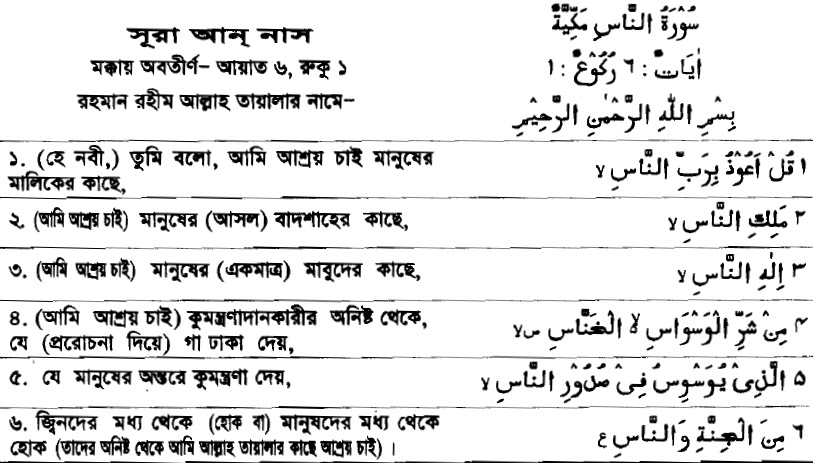 সূরা আন্ নাস
سُوْرَةُ النَّاسِ مَكِّيَّةٌ
মক্কায় অবতীর্ণ– আয়াত ৬, রুকু ১
اٰيَات : ٦ رُكُوْعٌ : ١
রহমান রহীম আল্লাহ তায়ালার নামে–
بِسْمِ اللّٰهِ الرَّحْمٰنِ الرَّحِيْمِ
১. (হে নবী,) তুমি বলো, আমি আশ্রয় চাই মানুষের
মালিকের কাছে,
١ قُلْ اَعُوْذُ بِرَبِّ النَّاسِ ۙ
২. (আমি আশ্রয় চাই) মানুষের (আসল) বাদশাহের কাছে,
٢ مَلِكِ النَّاسِ ۙ
৩. (আমি আশ্রয় চাই) মানুষের (একমাত্র) মাবুদের কাছে,
٣ اِلٰهِ النَّاسِ ۙ
৪. (আমি আশ্রয় চাই) কুমন্ত্রণাদানকারীর অনিষ্ট থেকে,
যে (প্ররোচনা দিয়ে) গা ঢাকা দেয়,
۴ مِنْ شَرِّ الْوَسْوَاسِ ۙ الْخَنَّاسِ ۙص
৫. যে মানুষের অন্তরে কুমন্ত্রণা দেয়,
۵ الَّذِىْ يُوَسْوِسُ فِىْ صُدُوْرِ النَّاسِ ۙ
৬. জ্বিনদের মধ্য থেকে (হোক বা) মানুষদের মধ্য থেকে
হোক (তাদের অনিষ্ট থেকে আমি আল্লাহ তায়ালার কাছে আশ্রয় চাই) ।
٦ مِنَ الْجِنَّةِ وَالنَّاسِ ع